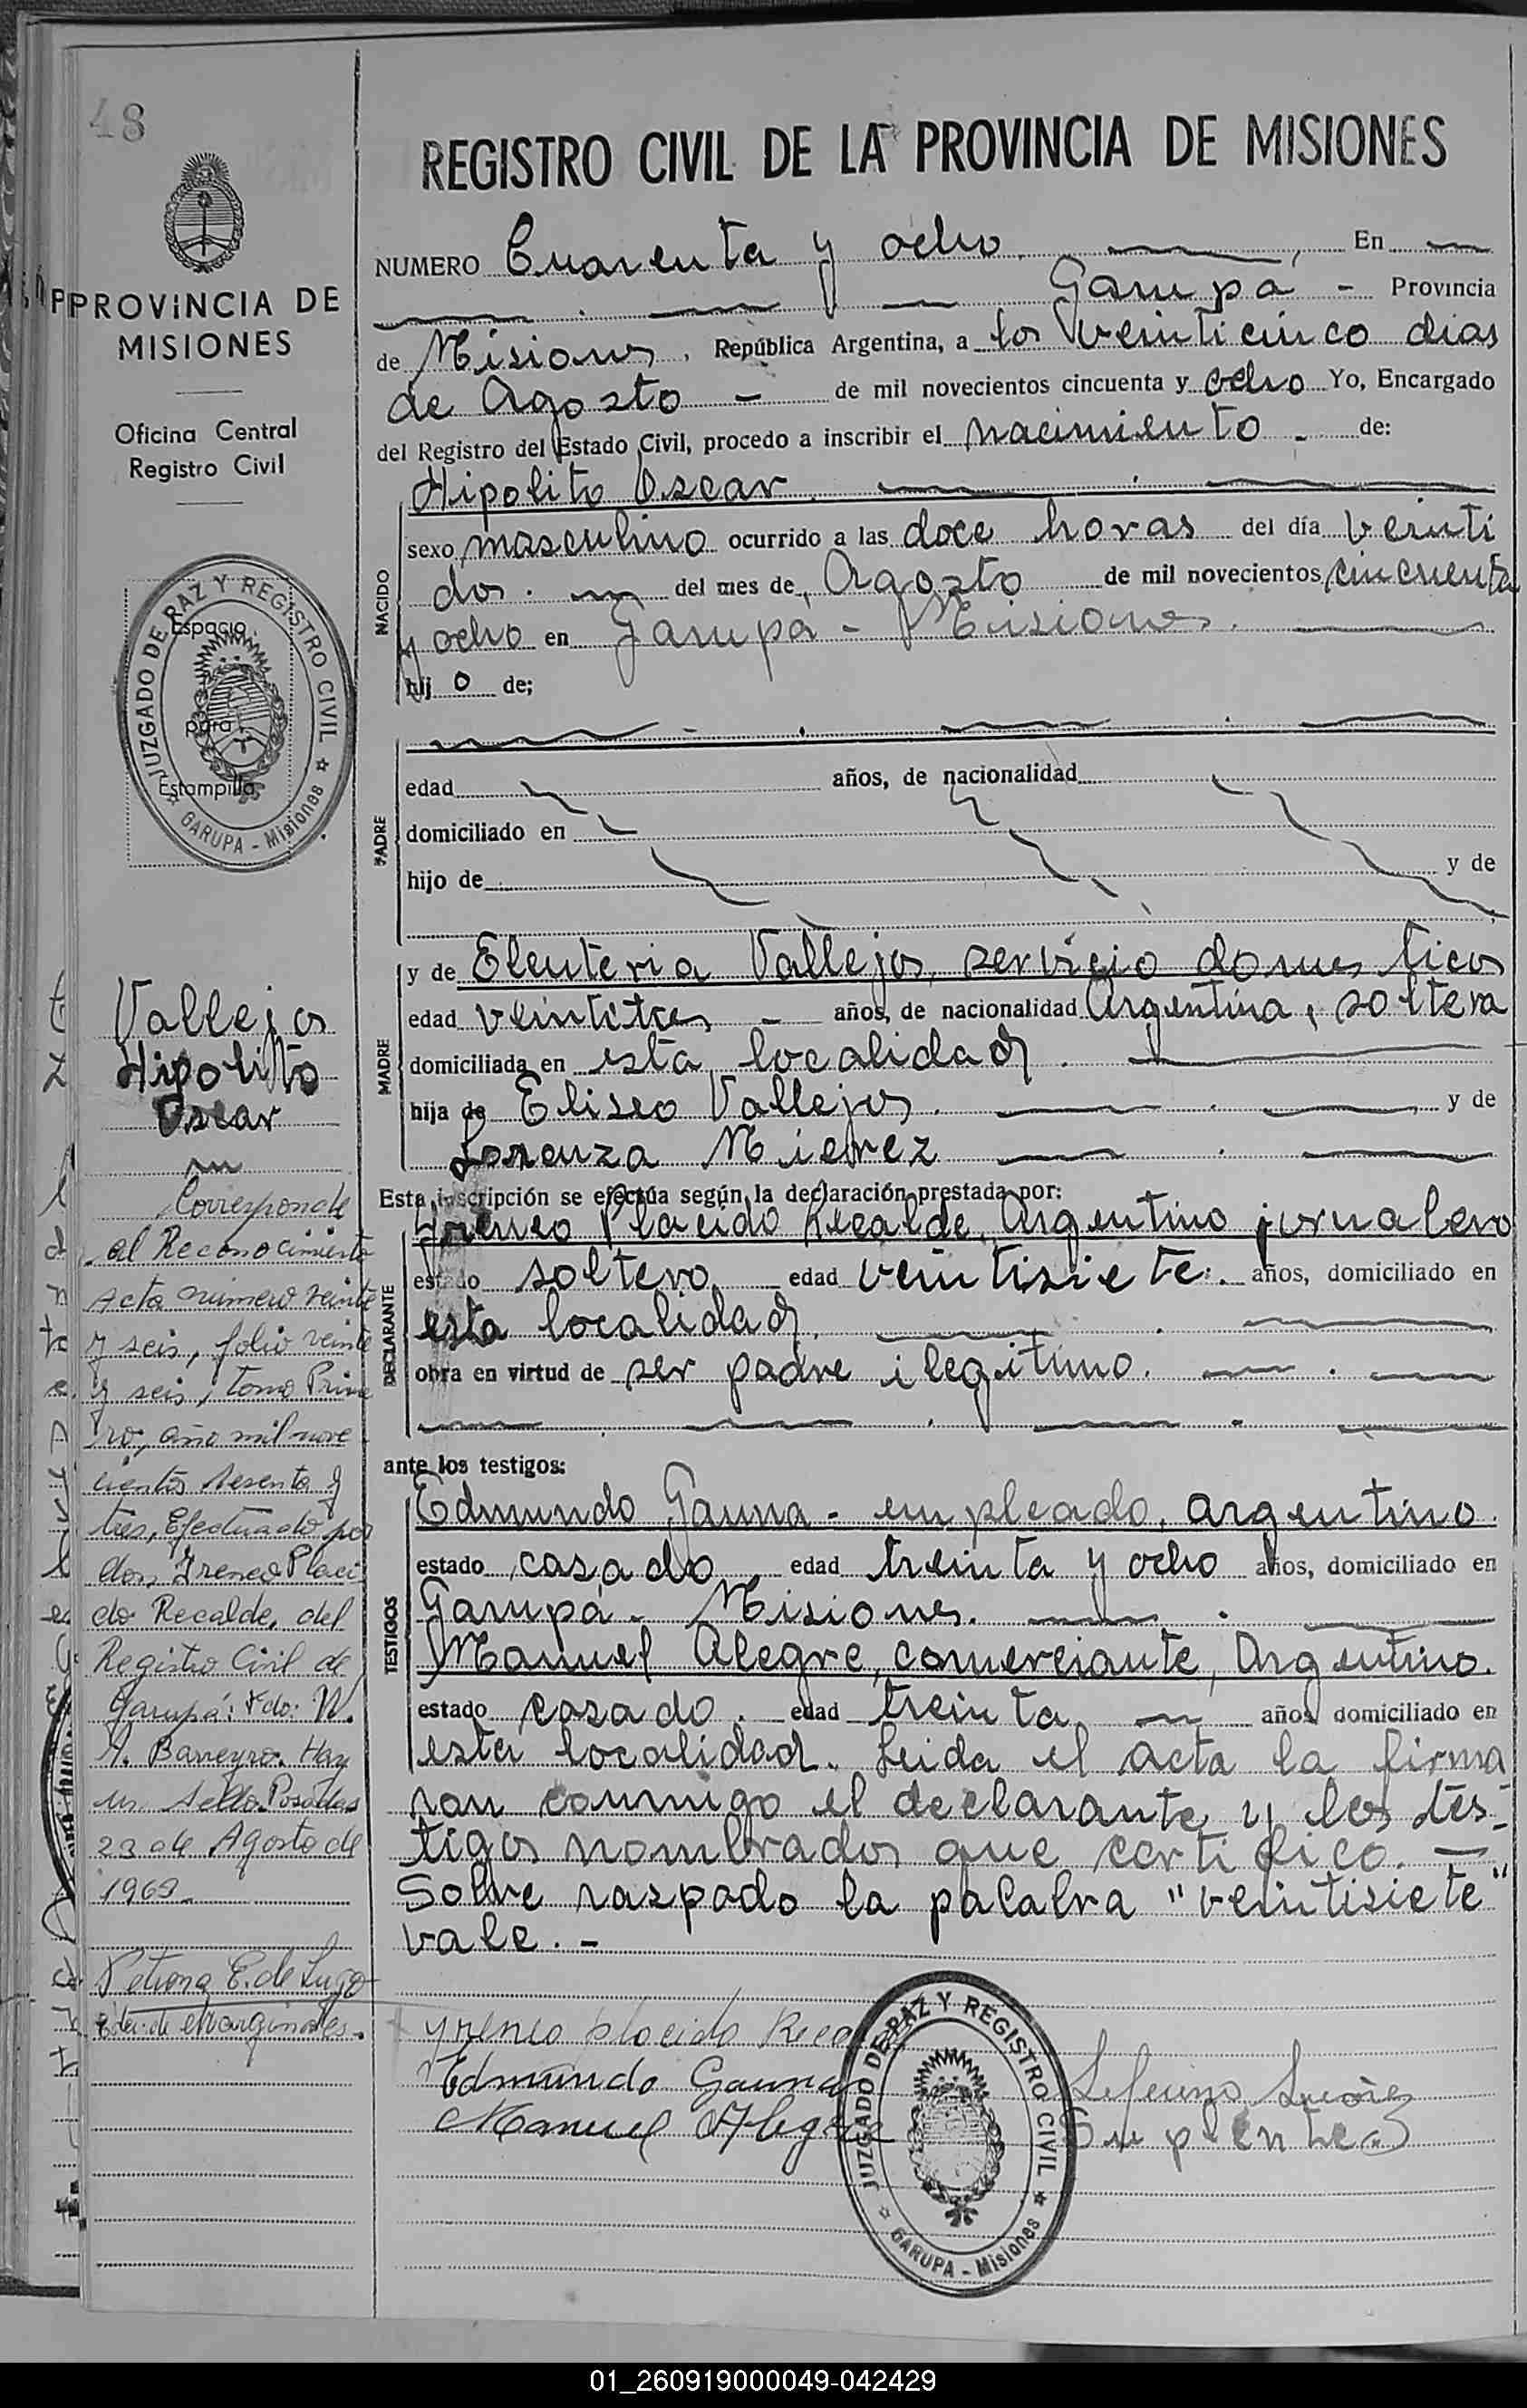 48
PROVINCIA DE
MISIONES
Oficina Central
Registro Civil
JUZGADO DE PAZ Y REGISTRO CIVIL
GARUPA - Misiones
Espacio
para
Estampilla
Vallejos
Hipolito
Oscar
Corresponde
al Reconocimiento
Acta número veinte
y seis, folio veinte
y seis, tomo Prime
ro, año mil nove
cientos sesenta y
tres, Efectuado por
don, Ireneo Placi
do Recalde, del
Registro Civil de
Garupá: Fdo: N.
A. Barreyro. Hay
un sello. Posadas
23 de Agosto de
1969
Petrona E. de Lugo
de Marginales.
REGISTRO CIVIL DE LA PROVINCIA DE MISIONES
NUMERO Cuarenta y ocho. En
Garupá - Provincia
de Misiones, República Argentina, a los veinticinco dias
de Agosto - de mil novecientos cincuenta y ocho Yo, Encargado
del Registro del Estado Civil, procedo a inscribir el nacimiento - de:
Hipolito Oscar.
NACIDO
sexo masculino ocurrido a las doce horas del día veinti
dos. del mes de Agosto de mil novecientos cincuenta
y ocho en Garupá - Misiones.
hij o de;
PADRE
edad años, de nacionalidad
domiciliado en
hijo de y de
MADRE
y de Eleuteria Vallejos, servicio domesticos
edad veintitres - años, de nacionalidad Argentina, soltera
domiciliada en esta localidad.
hija de Eliseo Vallejos. y de
Lorenza Mierez
Esta inscripción se efectúa según la declaración prestada por:
DECLARANTE
Ireneo Placido Recalde, Argentino jornalero
estado soltero, edad veintisiete. años, domiciliado en
esta localidad.
obra en virtud de ser padre ilegitimo.
ante los testigos:
TESTIGOS
Edmundo Gauna - empleado, argentino.
estado casado edad treinta y ocho años, domiciliado en
Garupá - Misiones.
Manuel Alegre, comerciante, Argentino.
estado casado. edad treinta años domiciliado en
esta localidad. Leida el acta la firma
ron conmigo el declarante y los tes-
tigos nombrados que certifico. -
Sobre raspado la palabra "veintisiete"
vale. -
yreneo placido Reca
Edmundo Gauna
Manuel Alegre
Suplente
JUZGADO DE PAZ Y REGISTRO CIVIL
GARUPA - Misiones
01_260919000049-042429